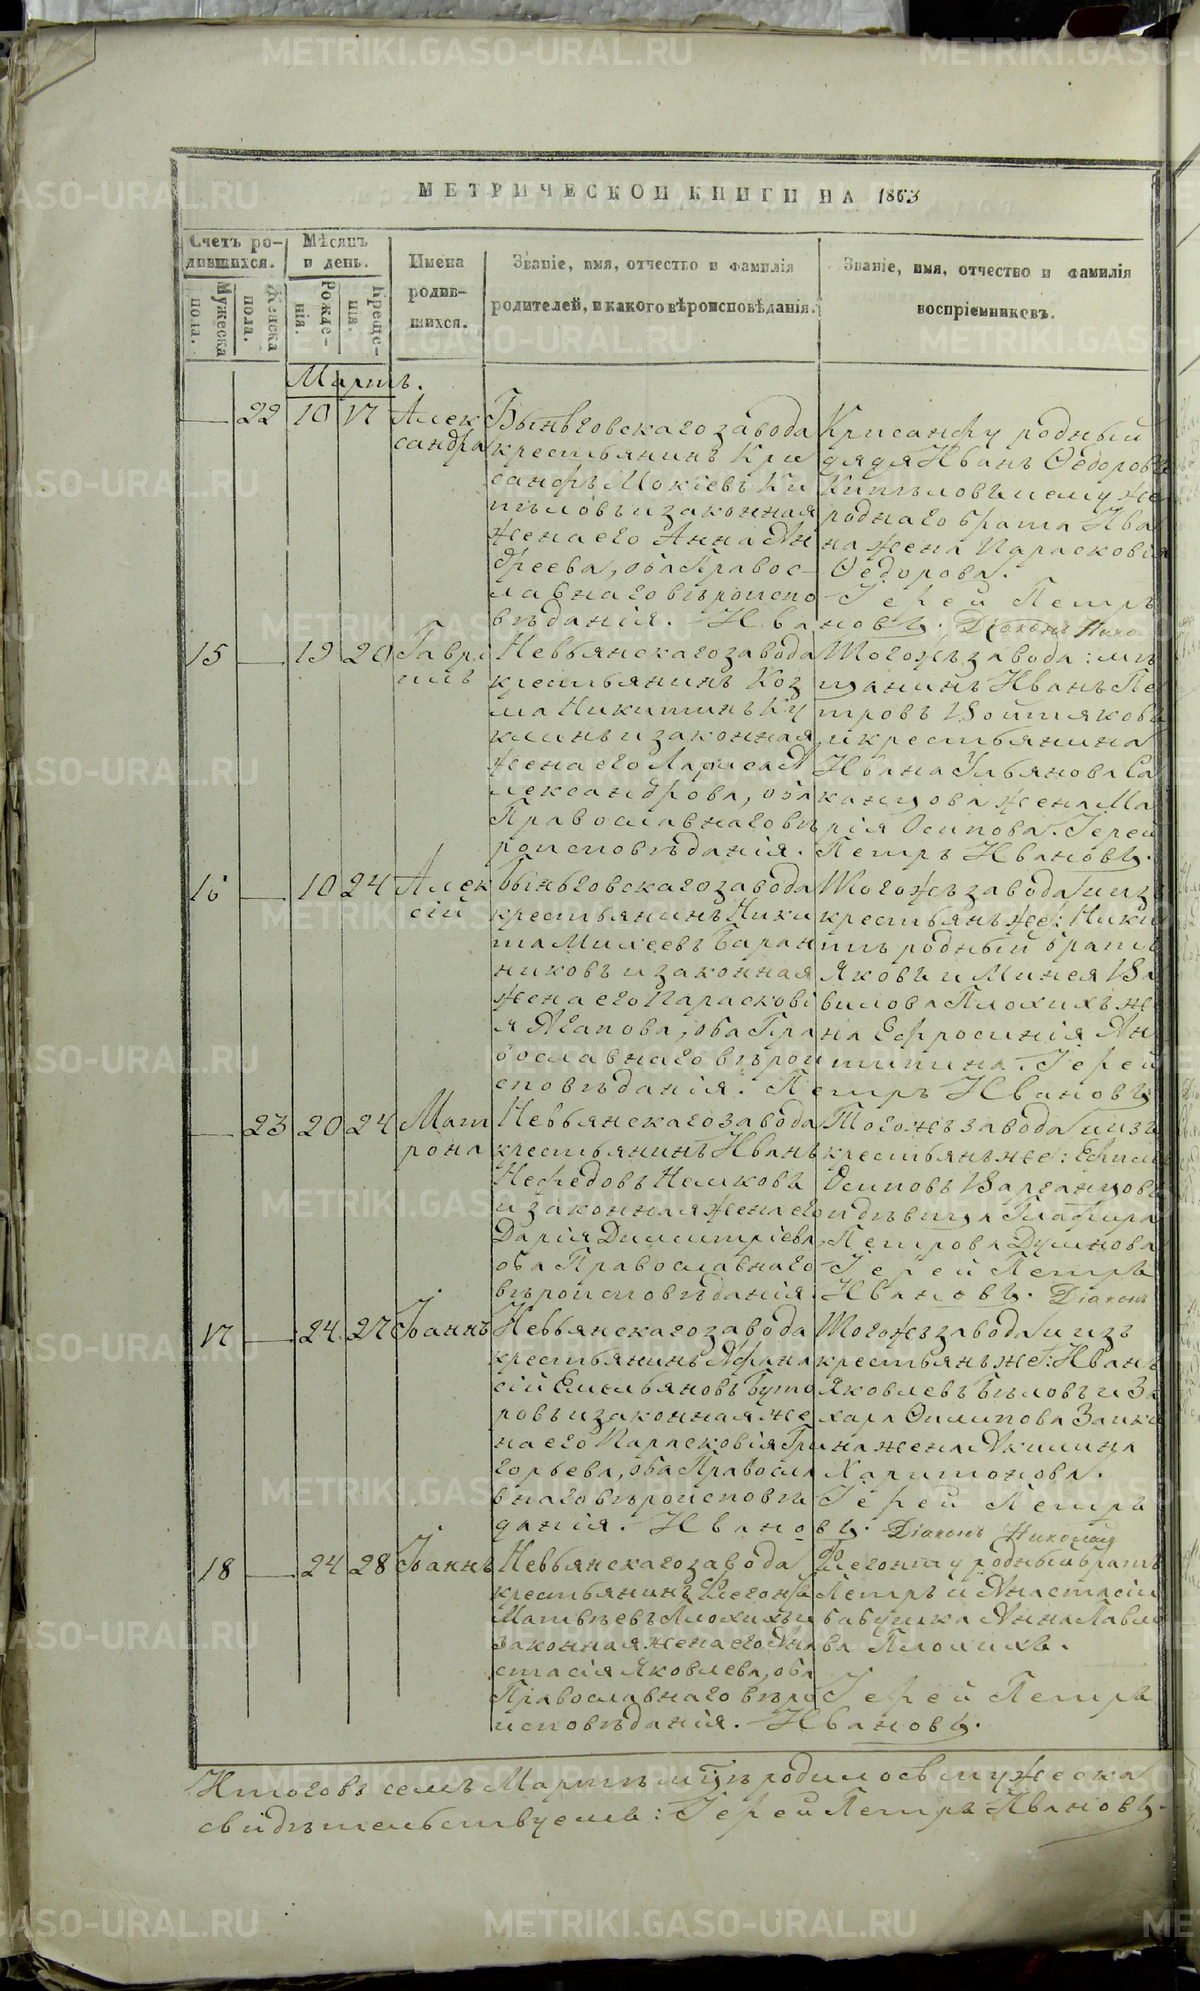 МЕТРИЧЕСКОЙ КНИГИ НА 1863
Счетъ ро-
дившихся.
Мужеска пола.
Женска пола.
Мѣсяцъ
и день.
Рожде-
нія.
Креще-
нія.
Имена
родив-
шихся.
Званіе, имя, отчество и фамилія
родителей, и какого вѣроисповѣданія.
Званіе, имя, отчество и фамилія
воспріемниковъ.
Мартъ.
22 10 17
Алек
сандра
Быньговскаго завода
крестьянинъ Кри
санфъ Мокіевъ Ки
пѣловъ и законная
жена его Анна Ан
дреева, оба Правос-
лавнаго вѣроиспо
вѣданія.
Крисанфу родный
дядя Иванъ Ѳедоровъ
Кипѣловъ и ему же
роднаго брата Ива
на жена Парасковія
Ѳедорова.
Іерей Петръ
Ивановъ. Діаконъ Нико
15 19 20
Гаврі
илъ
Невьянскаго завода
крестьянинъ Коз
ма Никитинъ Ку
клинъ и законная
жена его Лариса А
лександрова, оба
Православнаго вѣ
роисповѣданія.
Тогожъ завода: мѣ
щанинъ Иванъ Пе
тровъ Войтяковъ
и крестьянина
Ивана Ульянова Са
канцова жена Ма
рія Осипова. Іерей
Петръ Ивановъ.
16 10 24
Алек
сій
Быньговскаго завода
крестьянинъ Ники
та Минеевъ Баран
никовъ и законная
жена его Параскові
я Агапова, оба Пра
вославнаго вѣрои
сповѣданія.
Тогожъ завода и изъ
крестьянъ же: Ники
тѣ родный братъ
Яковъ и Минея Ва
вилова Плохихъ же
на Ефросинія Ан
типина. Іерей
Петръ Ивановъ
23 20 24
Мат
рона
Невьянскаго завода
крестьянинъ Иванъ
Нефедовъ Немковъ
и законная жена его
Дарія Димитріева
оба Православнаго
вѣроисповѣданія.
Тогожъ завода и изъ
крестьянъ же: Ефимъ
Осиповъ Варганцовъ
и дѣвица Глафира
Петрова Думнова
Іерей Петръ
Ивановъ. Діаконъ
17 24 27
Іоаннъ
Невьянскаго завода
крестьянинъ Афана
сій Емельяновъ Буто
ровъ и законная же
на его Парасковія Гри
горьева, оба Правосла
внаго вѣроисповѣ
данія.
Тогожъ завода и изъ
крестьянъ же: Иванъ
Яковлевъ Бѣловъ и За
хара Филипова Заики
на жена Акилина
Харитонова.
Іерей Петръ
Ивановъ. Діаконъ Николай
18 24 28
Іоаннъ
Невьянскаго завода
крестьянинъ Легонтъ
Матвѣевъ Плохихъ и
законная жена его Ана
стасія Яковлева, оба
Православнаго вѣро
исповѣданія.
Легонту родный братъ
Петръ и Анастасіи
бабушка Анна Павло
ва Плохихъ.
Іерей Петръ
Ивановъ.
Итого въ семъ Мартѣ мцѣ родилось мужеска
свидѣтельствуемъ: Іерей Петръ Ивановъ.
METRIKI.GASO-URAL.RU